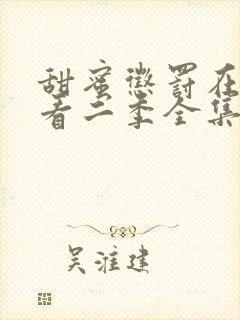 甜蜜惩罚在
看二季全集
吴淮建